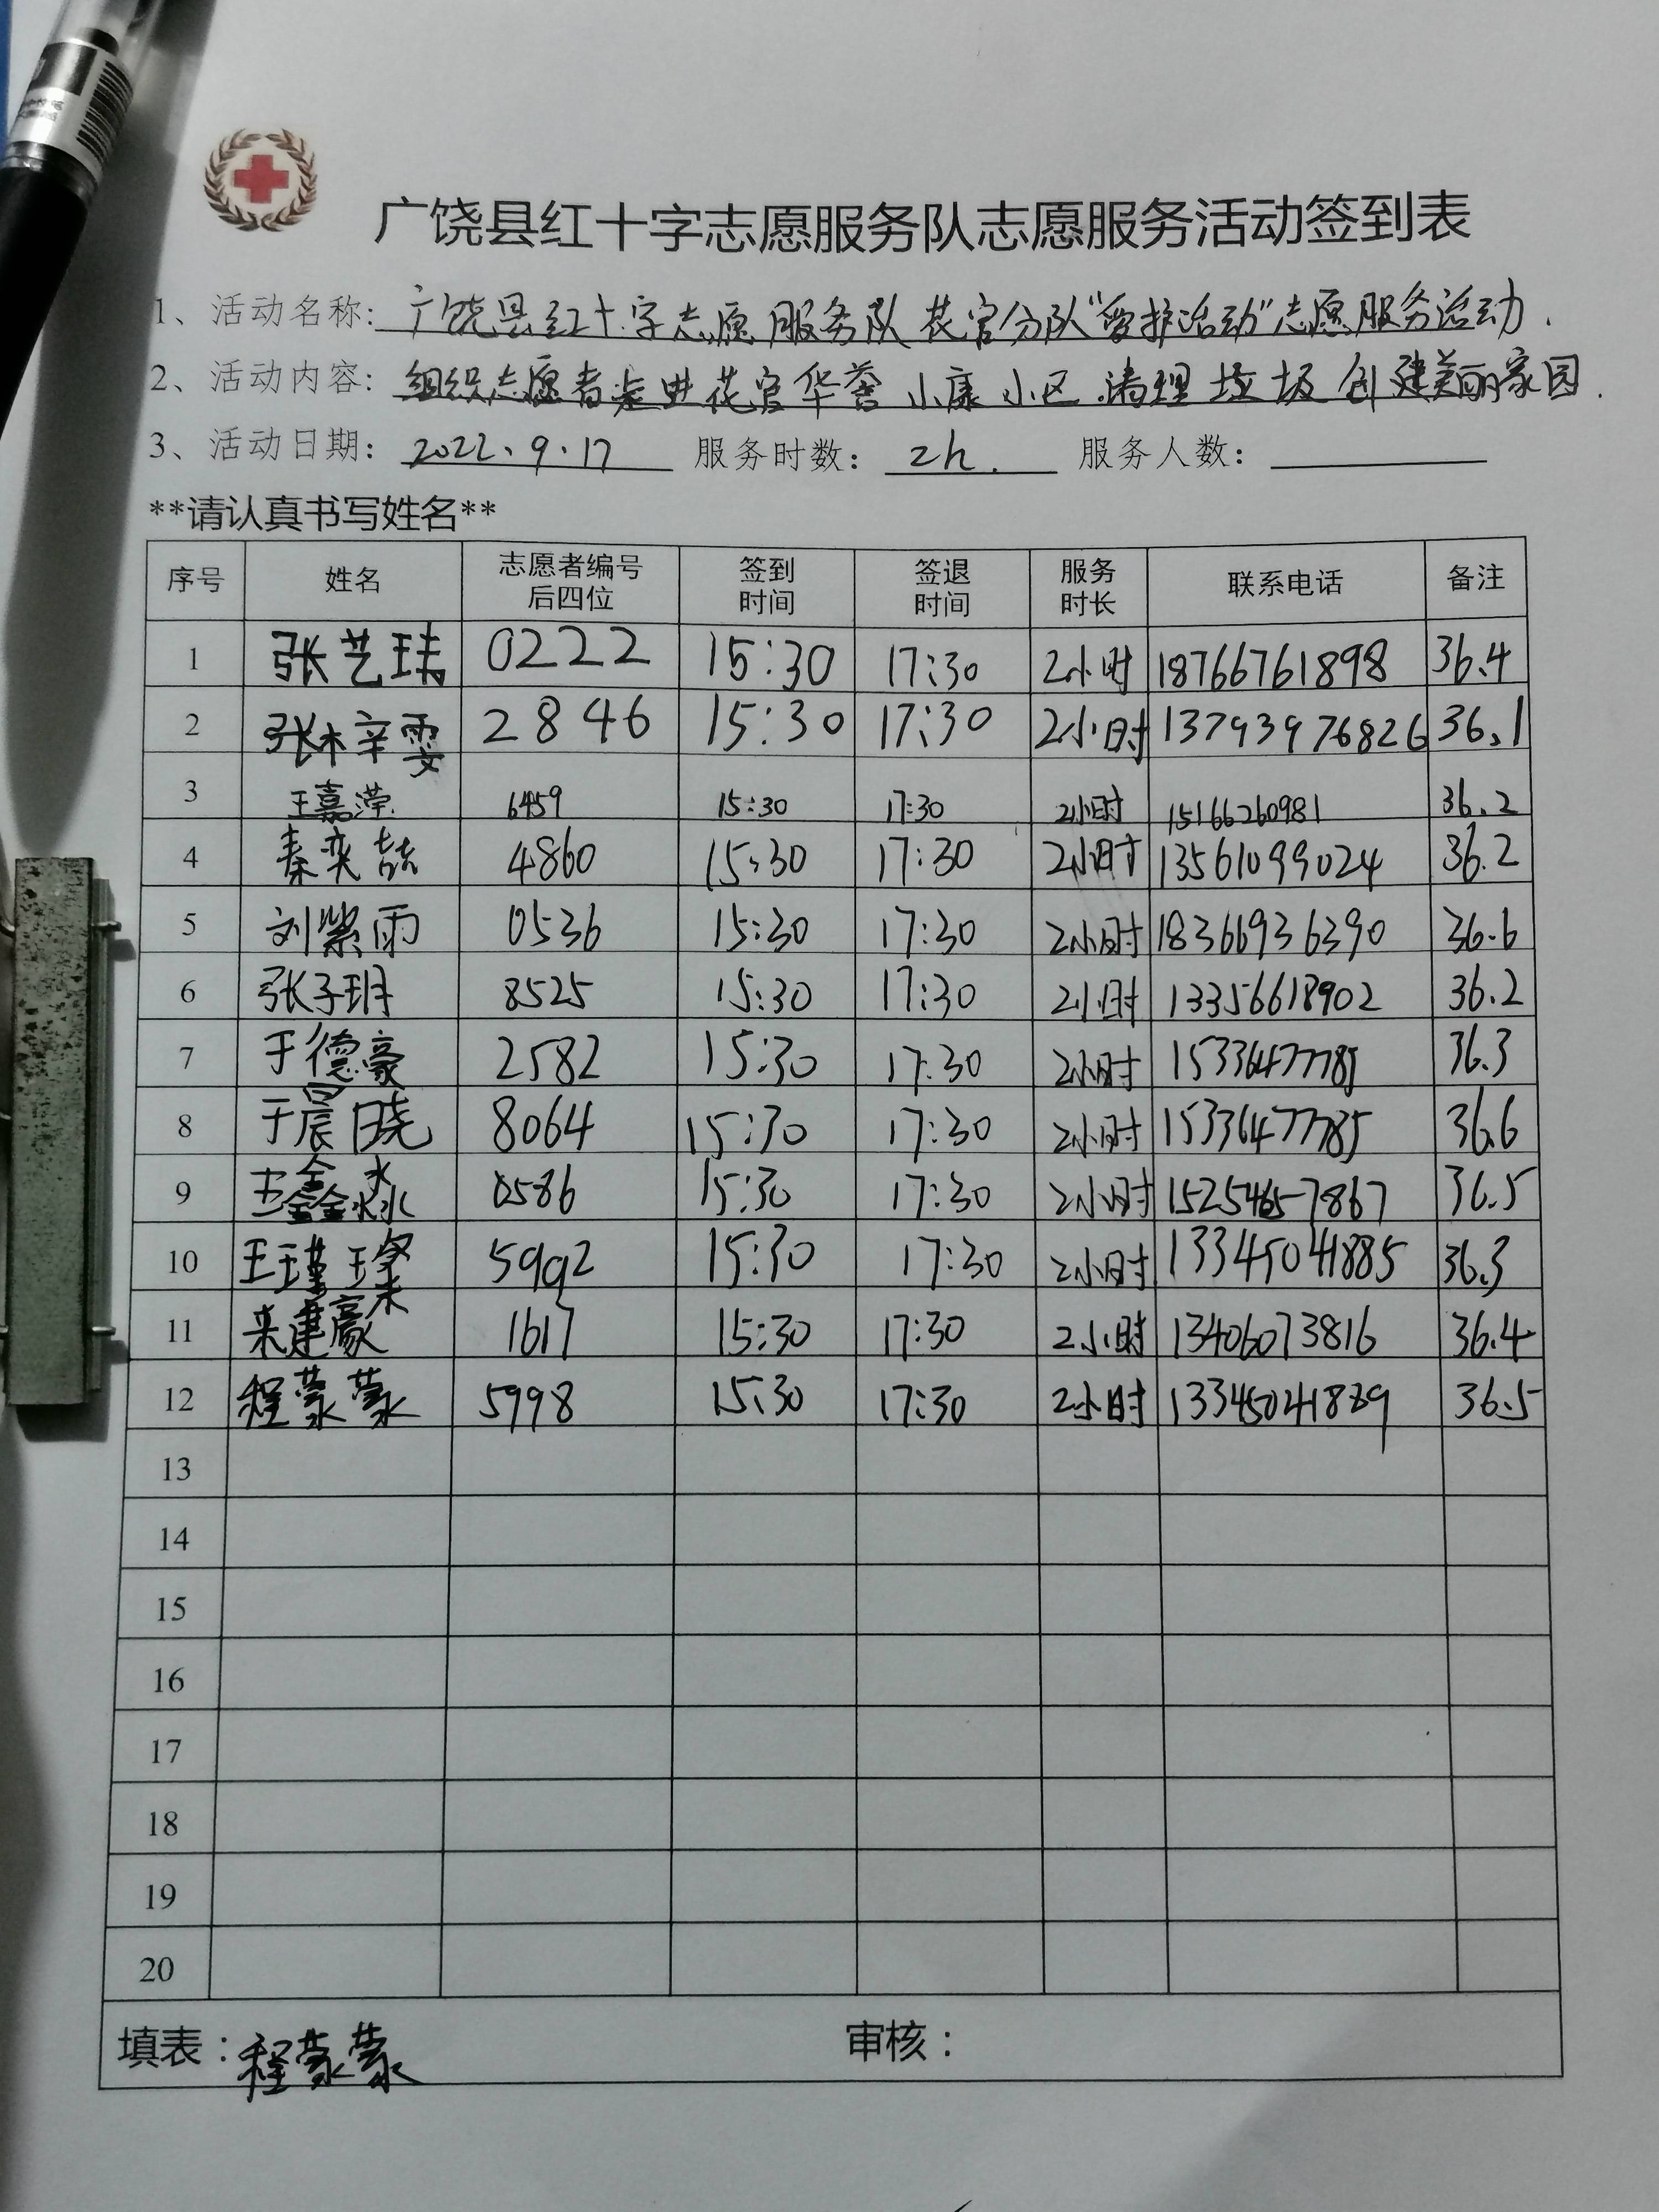 广饶县红十字志愿服务队志愿服务活动签到表
1、活动名称: 广饶县红十字志愿服务队花官分队“爱护活动”志愿服务活动.
2、活动内容: 组织志愿者走进花官华誉小康小区.清理垃圾创建美丽家园.
3、活动日期: 2022.9.17 服务时数: 2h. 服务人数:
**请认真书写姓名**
序号 姓名 志愿者编号后四位 签到时间 签退时间 服务时长 联系电话 备注
1 张艺玮 0222 15:30 17:30 2小时 18766761898 36.4
2 张梓雯 2846 15:30 17:30 2小时 13793976826 36.1
3 王嘉滢 6459 15:30 17:30 2小时 15166260981 36.2
4 秦奕喆 4860 15:30 17:30 2小时 13561099024 36.2
5 刘紫雨 0536 15:30 17:30 2小时 18366936390 36.6
6 张子玥 8525 15:30 17:30 2小时 13356618902 36.2
7 于德豪 2582 15:30 17:30 2小时 15336477785 36.3
8 于晨晓 8064 15:30 17:30 2小时 15336477785 36.6
9 王鑫淼 0586 15:30 17:30 2小时 15254657867 36.5
10 王瑾璨 5992 15:30 17:30 2小时 13345041885 36.3
11 来建豪 1617 15:30 17:30 2小时 13406073816 36.4
12 程蒙蒙 5998 15:30 17:30 2小时 13345041889 36.5
13
14
15
16
17
18
19
20
填表: 程蒙蒙 审核: